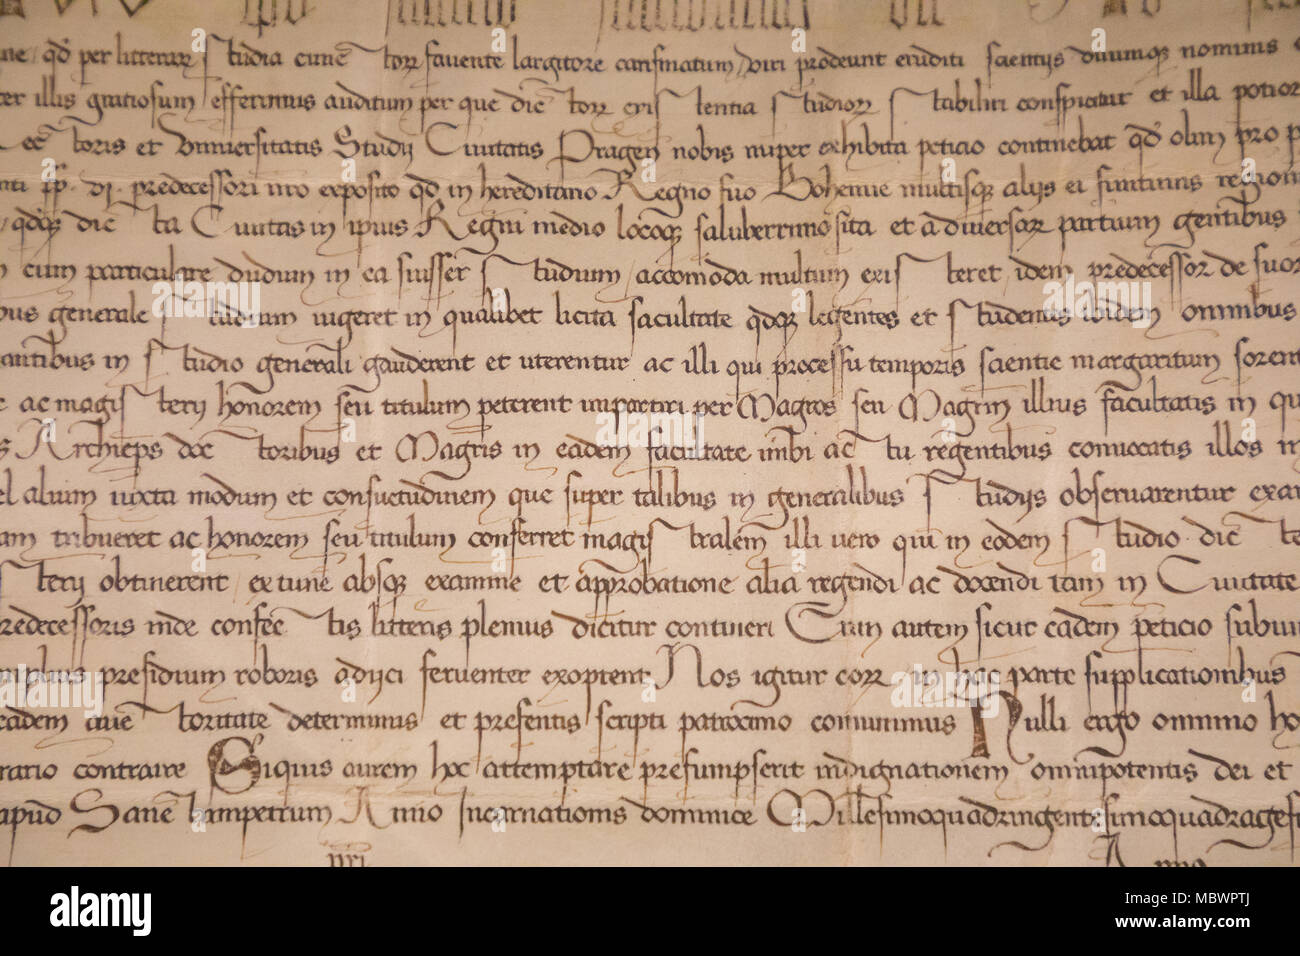 ne, qd per litterarr studia cunctorr favente largitore carismatum viri prodeunt eruditi scientijs divumq nominis
er illis gratiosum efferimus auditum per que dictorr existentia studiorr stabiliri conspiciatur et illa potior
ectoris et Universitatis Studij Civitatis Pragen nobis nuper exhibita peticio continebat qd olim pro p
nti pp. vj. predecessori nro exposito qd in hereditario Regno suo Bohemie multisq alijs ei finitimis region
qdq dicta Civitas in ipius Regni medio locoq saluberrimo sita et a diversorr partium gentibus
cum particulare dudum in ea fuisset studium accomoda multum existeret idem predecessor de suorr
bus generale studium vigeret in qualibet licita facultate qdq legentes et studentes ibidem omnibus
antibus in studio generali gauderent et uterentur ac illi qui processu temporis scientie margaritum sorent
ac magisterij honorem seu titulum peterent impartiri per Magros seu Magrm illius facultatis in qu
s Archieps doctoribus et Magris in eadem facultate inibi actu regentibus convocatis illos in
el alium iuxta modum et consuetudinem que super talibus in generalibus studijs observarentur exa
am tribueret ac honorem seu titulum conferret magistralem illi vero qui in eodem studio dicte
sterij obtinerent, extunc absq examine et approbatione alia regendi ac docendi tam in Civitate
redecessoris inde confectis litteris plenius dicitur contineri Cum autem sicut eadem peticio subiun
mplius presidium roboris adijci ferventer exoptent Nos igitur corr in hac parte supplicationibus
eadem auctoritate determinus et presentis scripti patrocinio communimus Nulli ergo omnino ho
rario contraire Siquis autem hoc attemptare presumpserit indignationem omnipotentis dei et
apud Sanctum petrum Anno Incarnationis dominice Millesimoquadringentesimoquadrages
alamy
Image ID: MBWPTJ
www.alamy.com